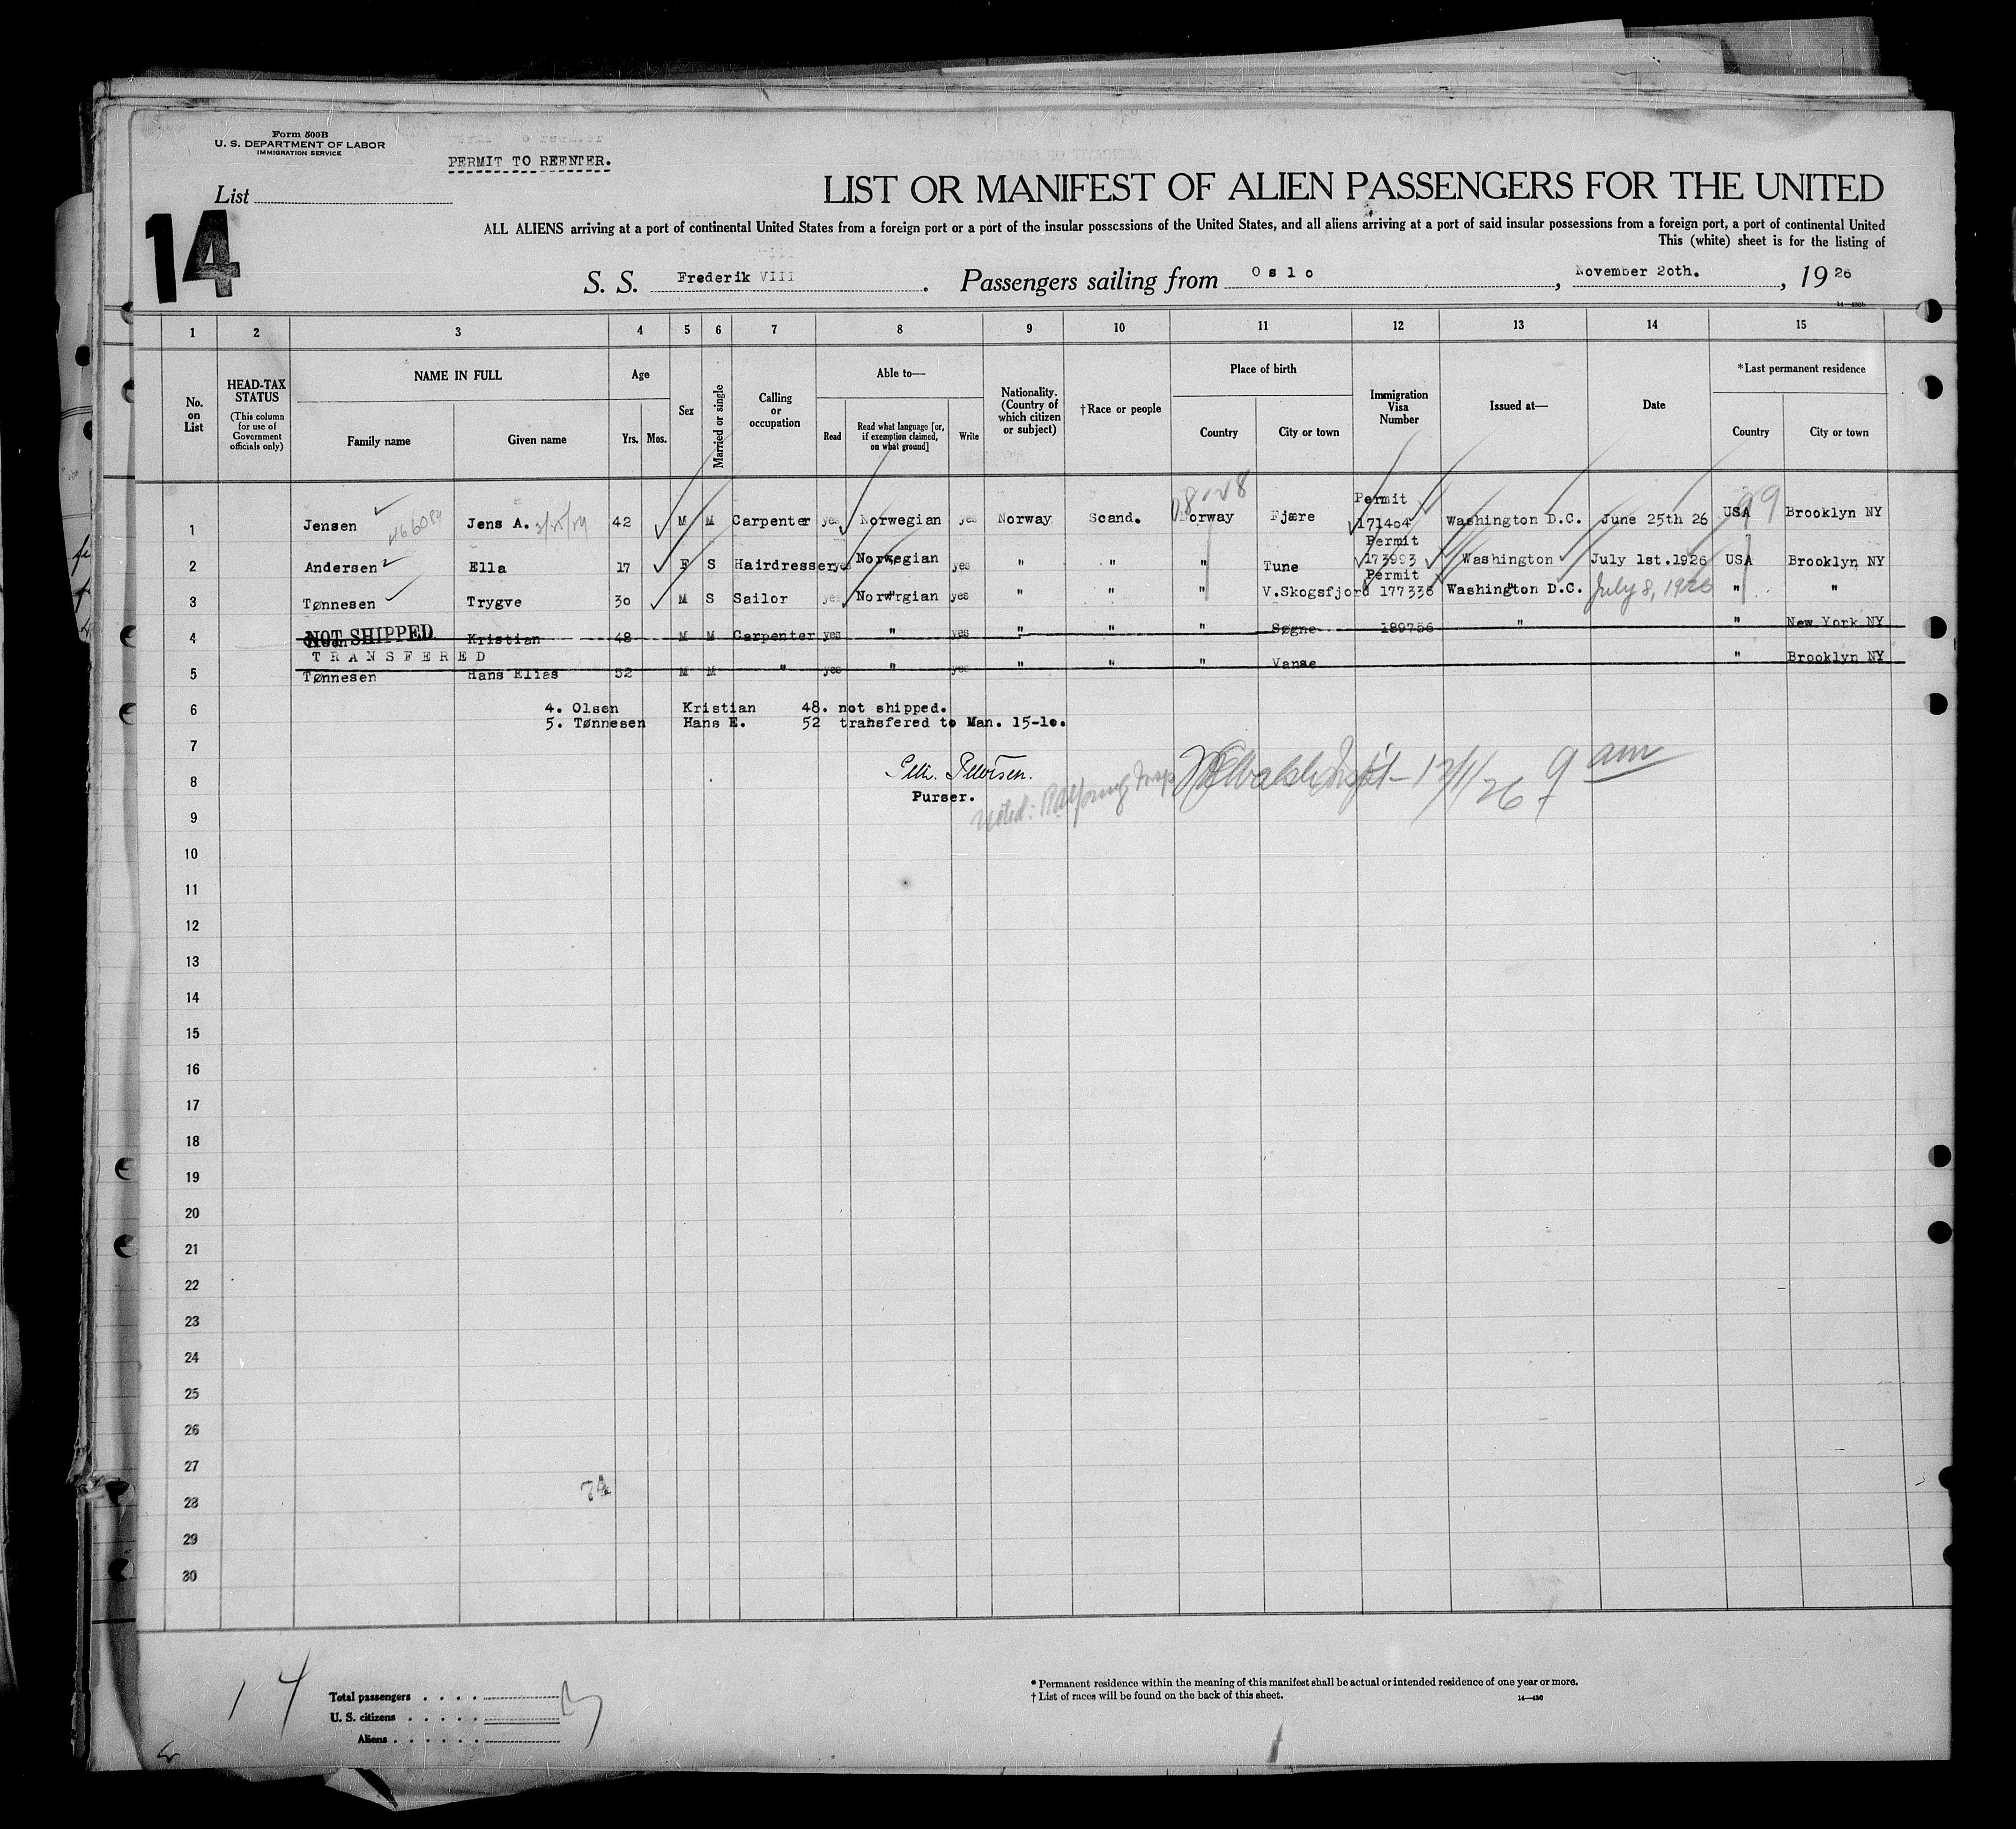 Form 500B
U. S. DEPARTMENT OF LABOR
IMMIGRATION SERVICE
PERMIT TO REENTER.
List
14
LIST OR MANIFEST OF ALIEN PASSENGERS FOR THE UNITED
ALL ALIENS arriving at a port of continental United States from a foreign port or a port of the insular possessions of the United States, and all aliens arriving at a port of said insular possessions from a foreign port, a port of continental United
This (white) sheet is for the listing of
S. S. Frederik VIII. Passengers sailing from Oslo, November 20th., 1926
14—430b
1 2 3 4 5 6 7 8 9 10 11 12 13 14 15
No. on List
HEAD-TAX STATUS
(This column for use of Government officials only)
NAME IN FULL
Family name Given name
Age
Yrs. Mos.
Sex
Married or single
Calling or occupation
Able to—
Read
Read what language [or, if exemption claimed, on what ground]
Write
Nationality. (Country of which citizen or subject)
†Race or people
Place of birth
Country City or town
Immigration Visa Number
Issued at—
Date
*Last permanent residence
Country City or town
1 Jensen Jens A. 42 M M Carpenter yes Norwegian yes Norway Scand. Norway Fjære Permit 171404 Washington D.C. June 25th 26 USA Brooklyn NY
2 Andersen Ella 17 F S Hairdresser yes Norwegian yes " " " Tune Permit 173993 Washington July 1st.1926 USA Brooklyn NY
3 Tønnesen Trygve 30 M S Sailor yes Norwrgian yes " " " V.Skogsfjord Permit 177336 Washington D.C. July 8, 1926 " "
4 NOT SHIPPED Olsen Kristian 48 M M Carpenter yes " yes " " " Søgne 189756 " " New York NY
TRANSFERED
5 Tønnesen Hans Elias 52 M M " yes " yes " " " Vanse " Brooklyn NY
6 4. Olsen Kristian 48. not shipped.
5. Tønnesen Hans E. 52 transfered to Man. 15-10.
7
8
Purser.
12/1/26 9 am
Noted:
9
10
11
12
13
14
15
16
17
18
19
20
21
22
23
24
25
26
27
28
29
30
14
Total passengers
U. S. citizens
Aliens
* Permanent residence within the meaning of this manifest shall be actual or intended residence of one year or more.
† List of races will be found on the back of this sheet.
14—430